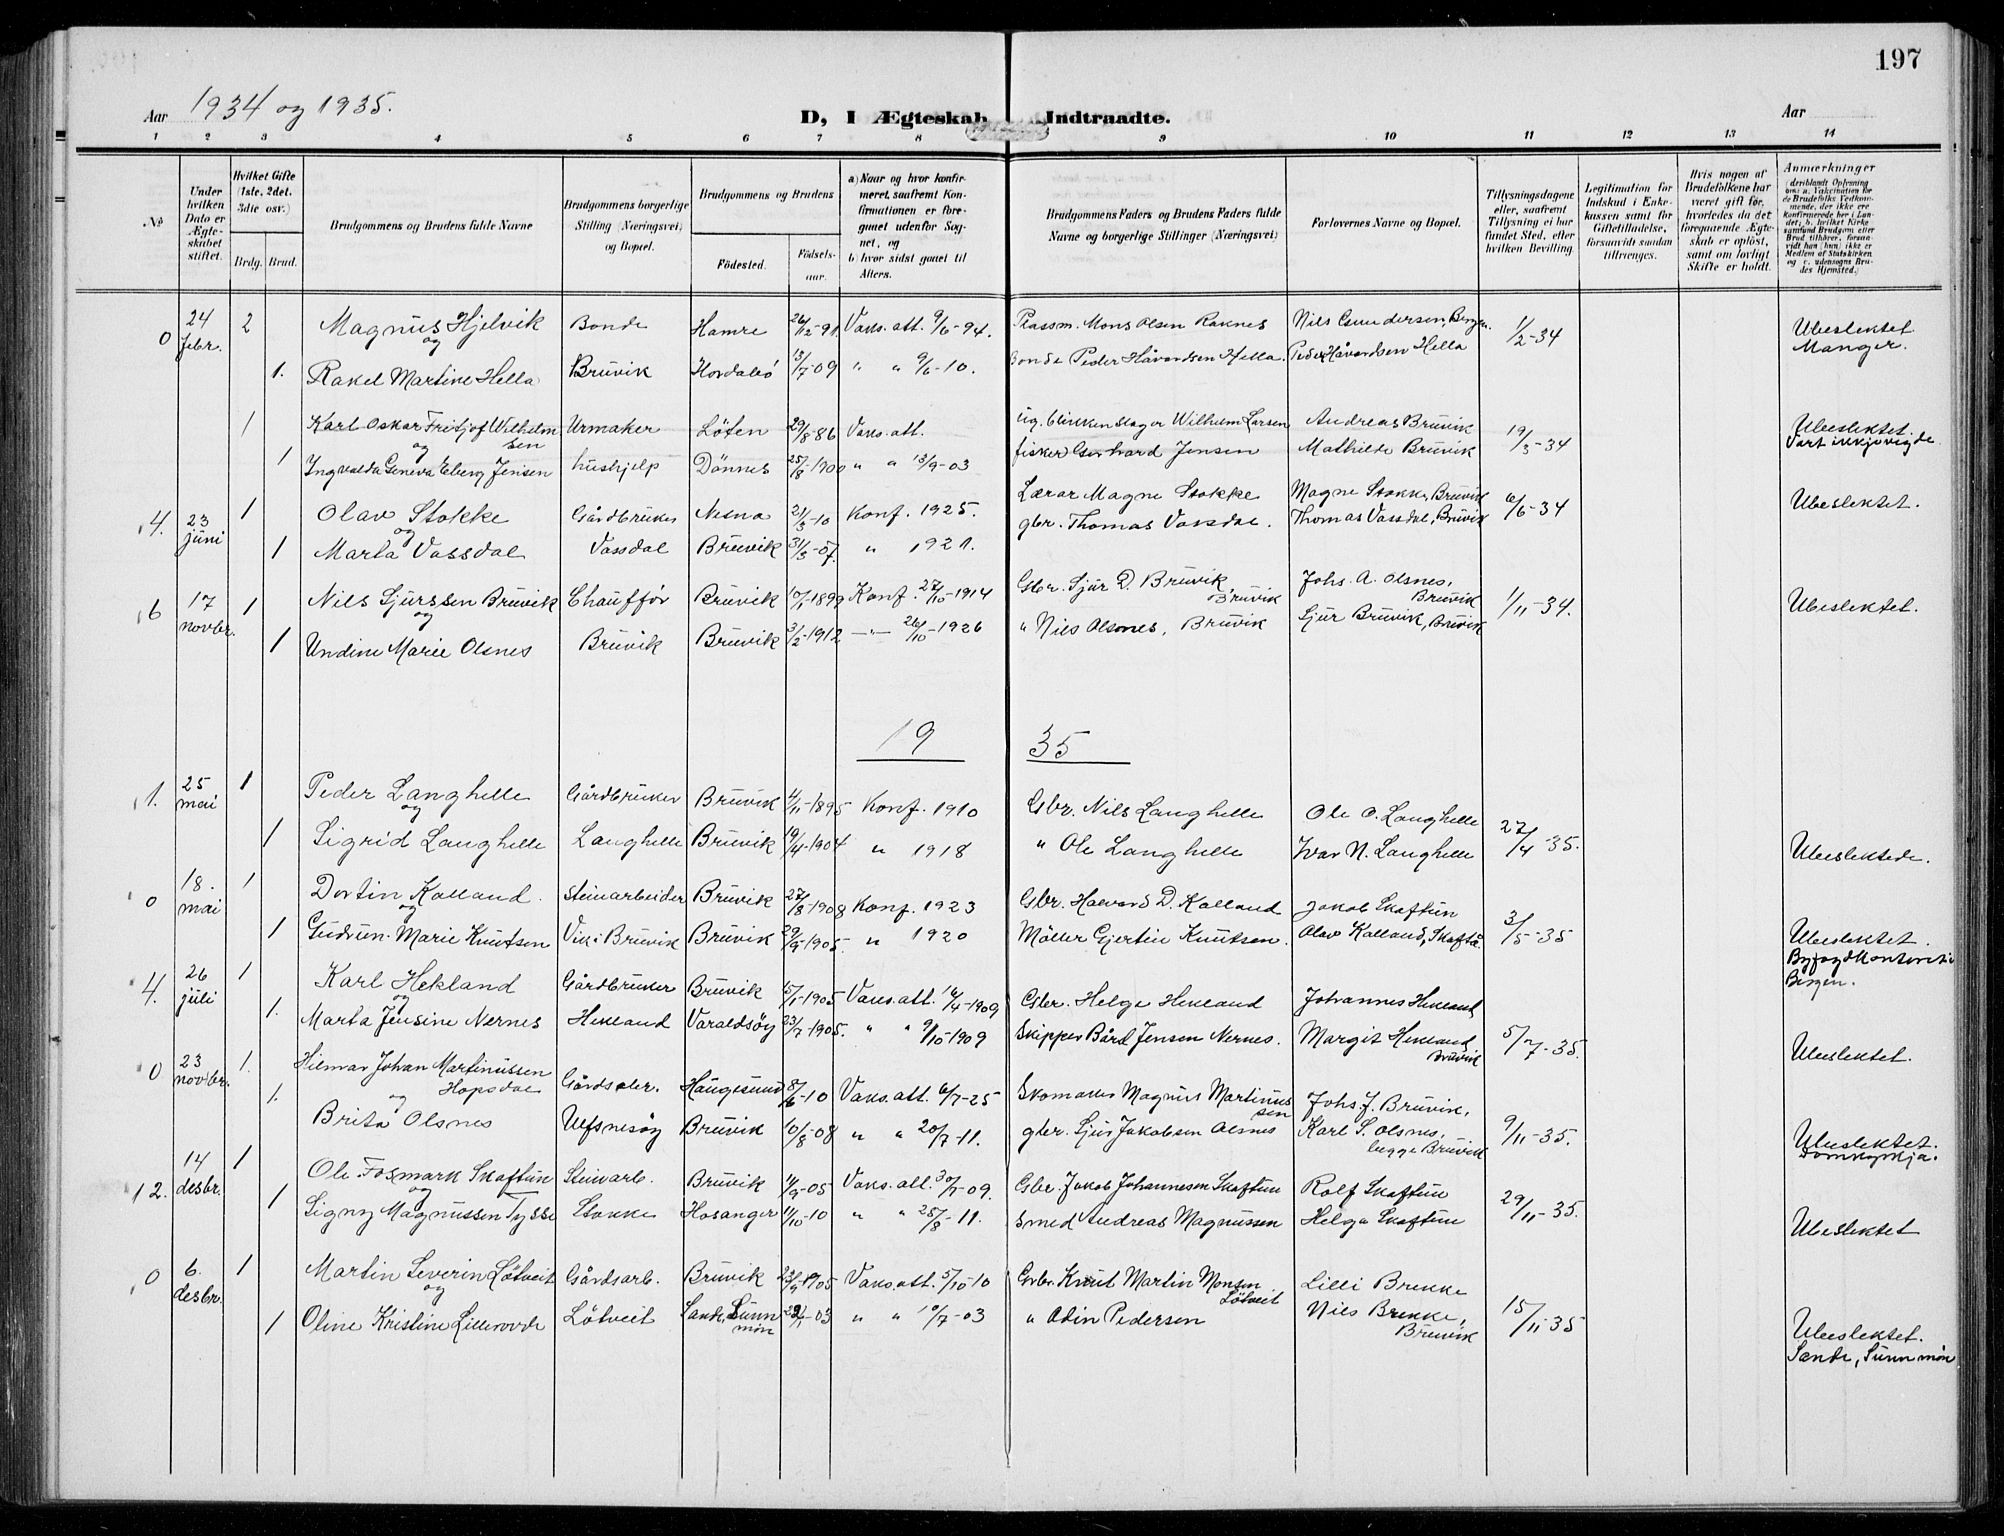 197
Aar 1934 og 1935. D, 1 Ægteskab Indtraadte. Aar
1 2 3 4 5 6 7 8 9 10 11 12 13 14
No.
Under hvilken Dato er Ægteskabet stiftet.
Hvilket Gifte (1ste, 2det, 3die osv.)
Brdg. Brud.
Brudgommens og Brudens fulde Navne
Brudgommens borgerlige Stilling (Næringsvei) og Bopæl.
Brudgommens og Brudens
Fødested. Fødselsaar.
a) Naar og hvor konfirmeret, saafremt Konfirmationen er foregaaet udenfor Sognet, og
b) hvor sidst gaaet til Alters.
Brudgommens Faders og Brudens Faders fulde Navne og borgerlige Stillinger (Næringsvei)
Forlovernes Navne og Bopæl.
Tillysningsdagene eller, saafremt Tillysning ei har fundet Sted, efter hvilken Bevilling
Legitimation for Indskud i Enkekassen samt for Giftetilladelse, forsaavidt saadan tiltrænges.
Hvis nogen af Brudefolkene har været gift før, hvorledes da det foregaaende Ægteskab er opløst, samt om lovligt Skifte er holdt.
Anmerkninger
(deriblandt Oplysning om: a. Vakcination for de Brudefolks Vedkommende, der ikke ere Konfirmerede her i Landet; b. hvilket Kirkesamfund Brudgom eller Brud tilhører, forsaavidt han (hun) ikke er Medlem af Statskirken og c. udensogns Brudes Hjemsted.)
0 24 febr. 2 Magnus Hjelvik Bonde Hamre 26/12-91 Vaks. att. 9/6-94. Plassm. Mons Olsen Raknes Nils Gundersen, Bergen. 1/2-34 Ubeslektet
og
1. Rakel Martine Hella Bruvik Hordabø 13/7-09 " " 9/6-10. Bonde Peder Håvardsen Hella. Peder Håvardsen Hella Manger.
1 Karl Oskar Fritjof Wilhelmsen Urmaker Løten 29/8-86 Vaks. att. ug. blikkenslager Wilhelm Larsen Andreas Bruvik 19/3-34 Ubeslektet.
og
1 Ingvalda Geneva Eberg Jensen hushjelp Dønnes 25/8-1900 " " 13/9-03 fisker Gerhard Jensen Mathilde Bruvik Vart ikkje vigde.
4. 23 juni 1 Olav Stokke Gårdbruker Nesna 21/3-10 Konf. 1925. Lærar Magne Stokke Magne Stokke, Bruvik 6/6-34 Ubeslektet.
og
1 Marta Vassdal Vassdal Bruvik 31/3-07. " 1921. gbr. Thomas Vassdal. Thomas Vassdal, Bruvik
6 17 novbr. 1 Nils Sjurssen Bruvik Chauffør Bruvik 10/1-1899 Konf. 27/10-1914 Gbr. Sjur D. Bruvik, Bruvik Johs. A. Olsnes, Bruvik 1/11-34. Ubeslektet.
og
1 Undine Marie Olsnes Bruvik Bruvik 3/2-1912 —"— 26/10-1926 " Nils Olsnes, Bruvik Sjur Bruvik, Bruvik
19 35
1. 25 mai 1 Peder Langhelle Gårdbruker Bruvik 4/11-1895 Konf. 1910 Gbr. Nils Langhelle Ole O. Langhelle
og
1 Sigrid Langhelle Langhelle Bruvik 19/4-1904 " 1918 " Ole Langhelle Ivar N. Langhelle 27/4-35. Ubeslektede.
0 18. mai 1 Dortin Kalland. Steinarbeider Bruvik 27/8-1908 Konf. 1923 Gbr. Haavard D. Kalland Jakob Skaftun
og
1 Gudrun Marie Knutsen Vik i Bruvik Bruvik 29/9-1905. " 1920 Møller Gjertin Knutsen. Olav Kalland, Skaftå 3/5-35 Ubeslektet.
Byfogdkontoret i Bergen.
4. 26 juli 1 Karl Hekland Gårdbruker Bruvik 5/1-1905 Vaks. att. 16/4-1909 Gbr. Helge Hekland Johannes Hekland
og
1. Marta Jensine Nernes Hekland Varaldsøy 23/7-1905. " " 9/10-1909 Skipper Bård Jensen Nernes. Margit Hekland Bruvik 5/7-35. Ubeslektet.
0 23 novbr. 1. Hilmar Johan Martinussen Hopsdal Gårdsarb. Haugesund 8/6-10 Vaks. att. 6/7-25 Skomaker Magnus Martinussen Johs. J. Bruvik,
og
1. Brita Olsnes Ulfsnesøy Bruvik 10/8-08 " " 20/7-11. gbr. Sjur Jakobsen Olsnes Karl S. Olsnes, begge Bruvik 9/11-35. Ubeslektet.
Domkyrkja.
12. 14 desbr. 1 Ole Fosmark Skaftun Steinarb. Bruvik 14/9-05 Vaks. att. 30/7-09. Gbr. Jakob Johannesen Skaftun Rolf Skaftun
og
1 Signy Magnussen Tysse Stokke Hosanger 11/10-10 " " 25/8-11. Smed Andreas Magnussen Helga Skaftun 29/11-35. Ubeslektet
0 6. desbr. 1 Martin Severin Løtveit Gårdsarb. Bruvik 23/9-1905 Vaks. att. 5/10-10 Gbr. Knut Martin Monsen Løtveit Lilli Brekke
og
1 Oline Kristine Lillerovde Løtveit Sande, Sunnmør 29/1-03 " " 10/7-03 " Odin Pedersen Nils Brekke, Bruvik 15/11-35 Ubeslektet.
Sande, Sunnmør